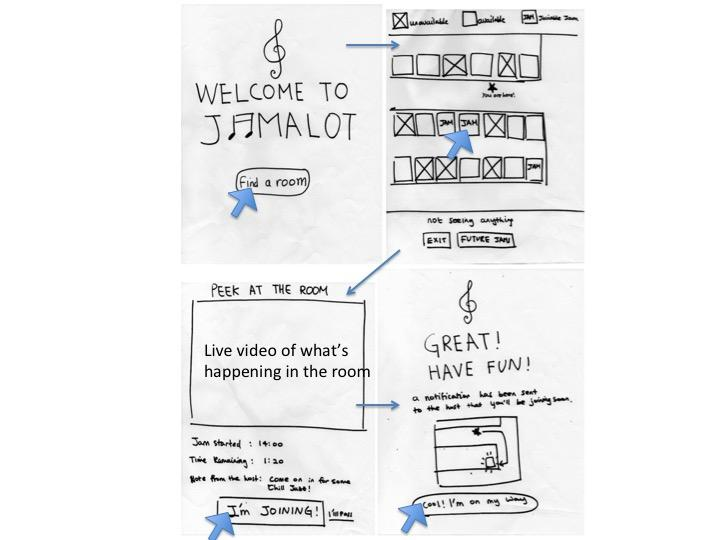 WELCOME TO
JAMALOT
Find a room
unavailable
available
JAM
Joinable Jam
You are here!
JAM
JAM
JAM
not seeing anything
EXIT
FUTURE JAMS
PEEK AT THE ROOM
Live video of what's
happening in the room
Jam started : 14:00
Time Remaining : 1:20
Note from the host: Come on in for some
Chill Jazz!
I'm JOINING!
I'll Pass
GREAT!
HAVE FUN!
a notification has been sent
to the host that you'll be joining soon.
Cool! I'm on my way